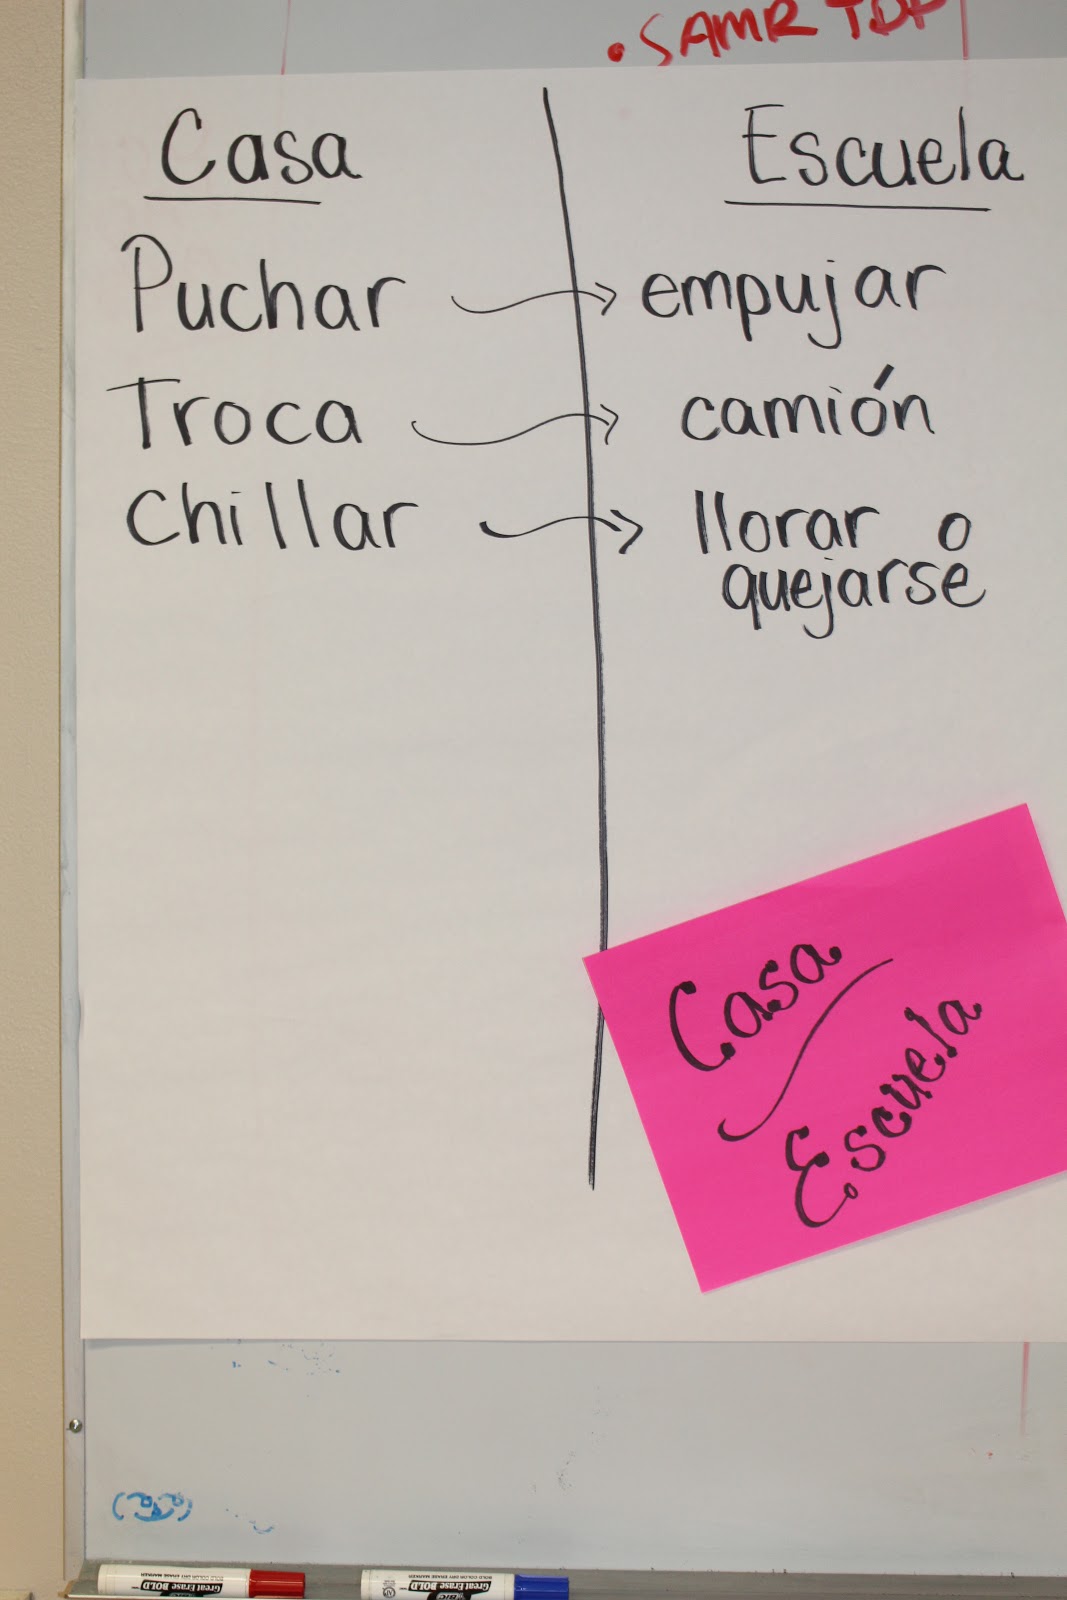 • SAMR TDP
Casa
Escuela
Puchar → empujar
Troca → camión
Chillar → llorar o
quejarse
Casa
Escuela
Great Erase BOLD™
Great Erase BOLD™